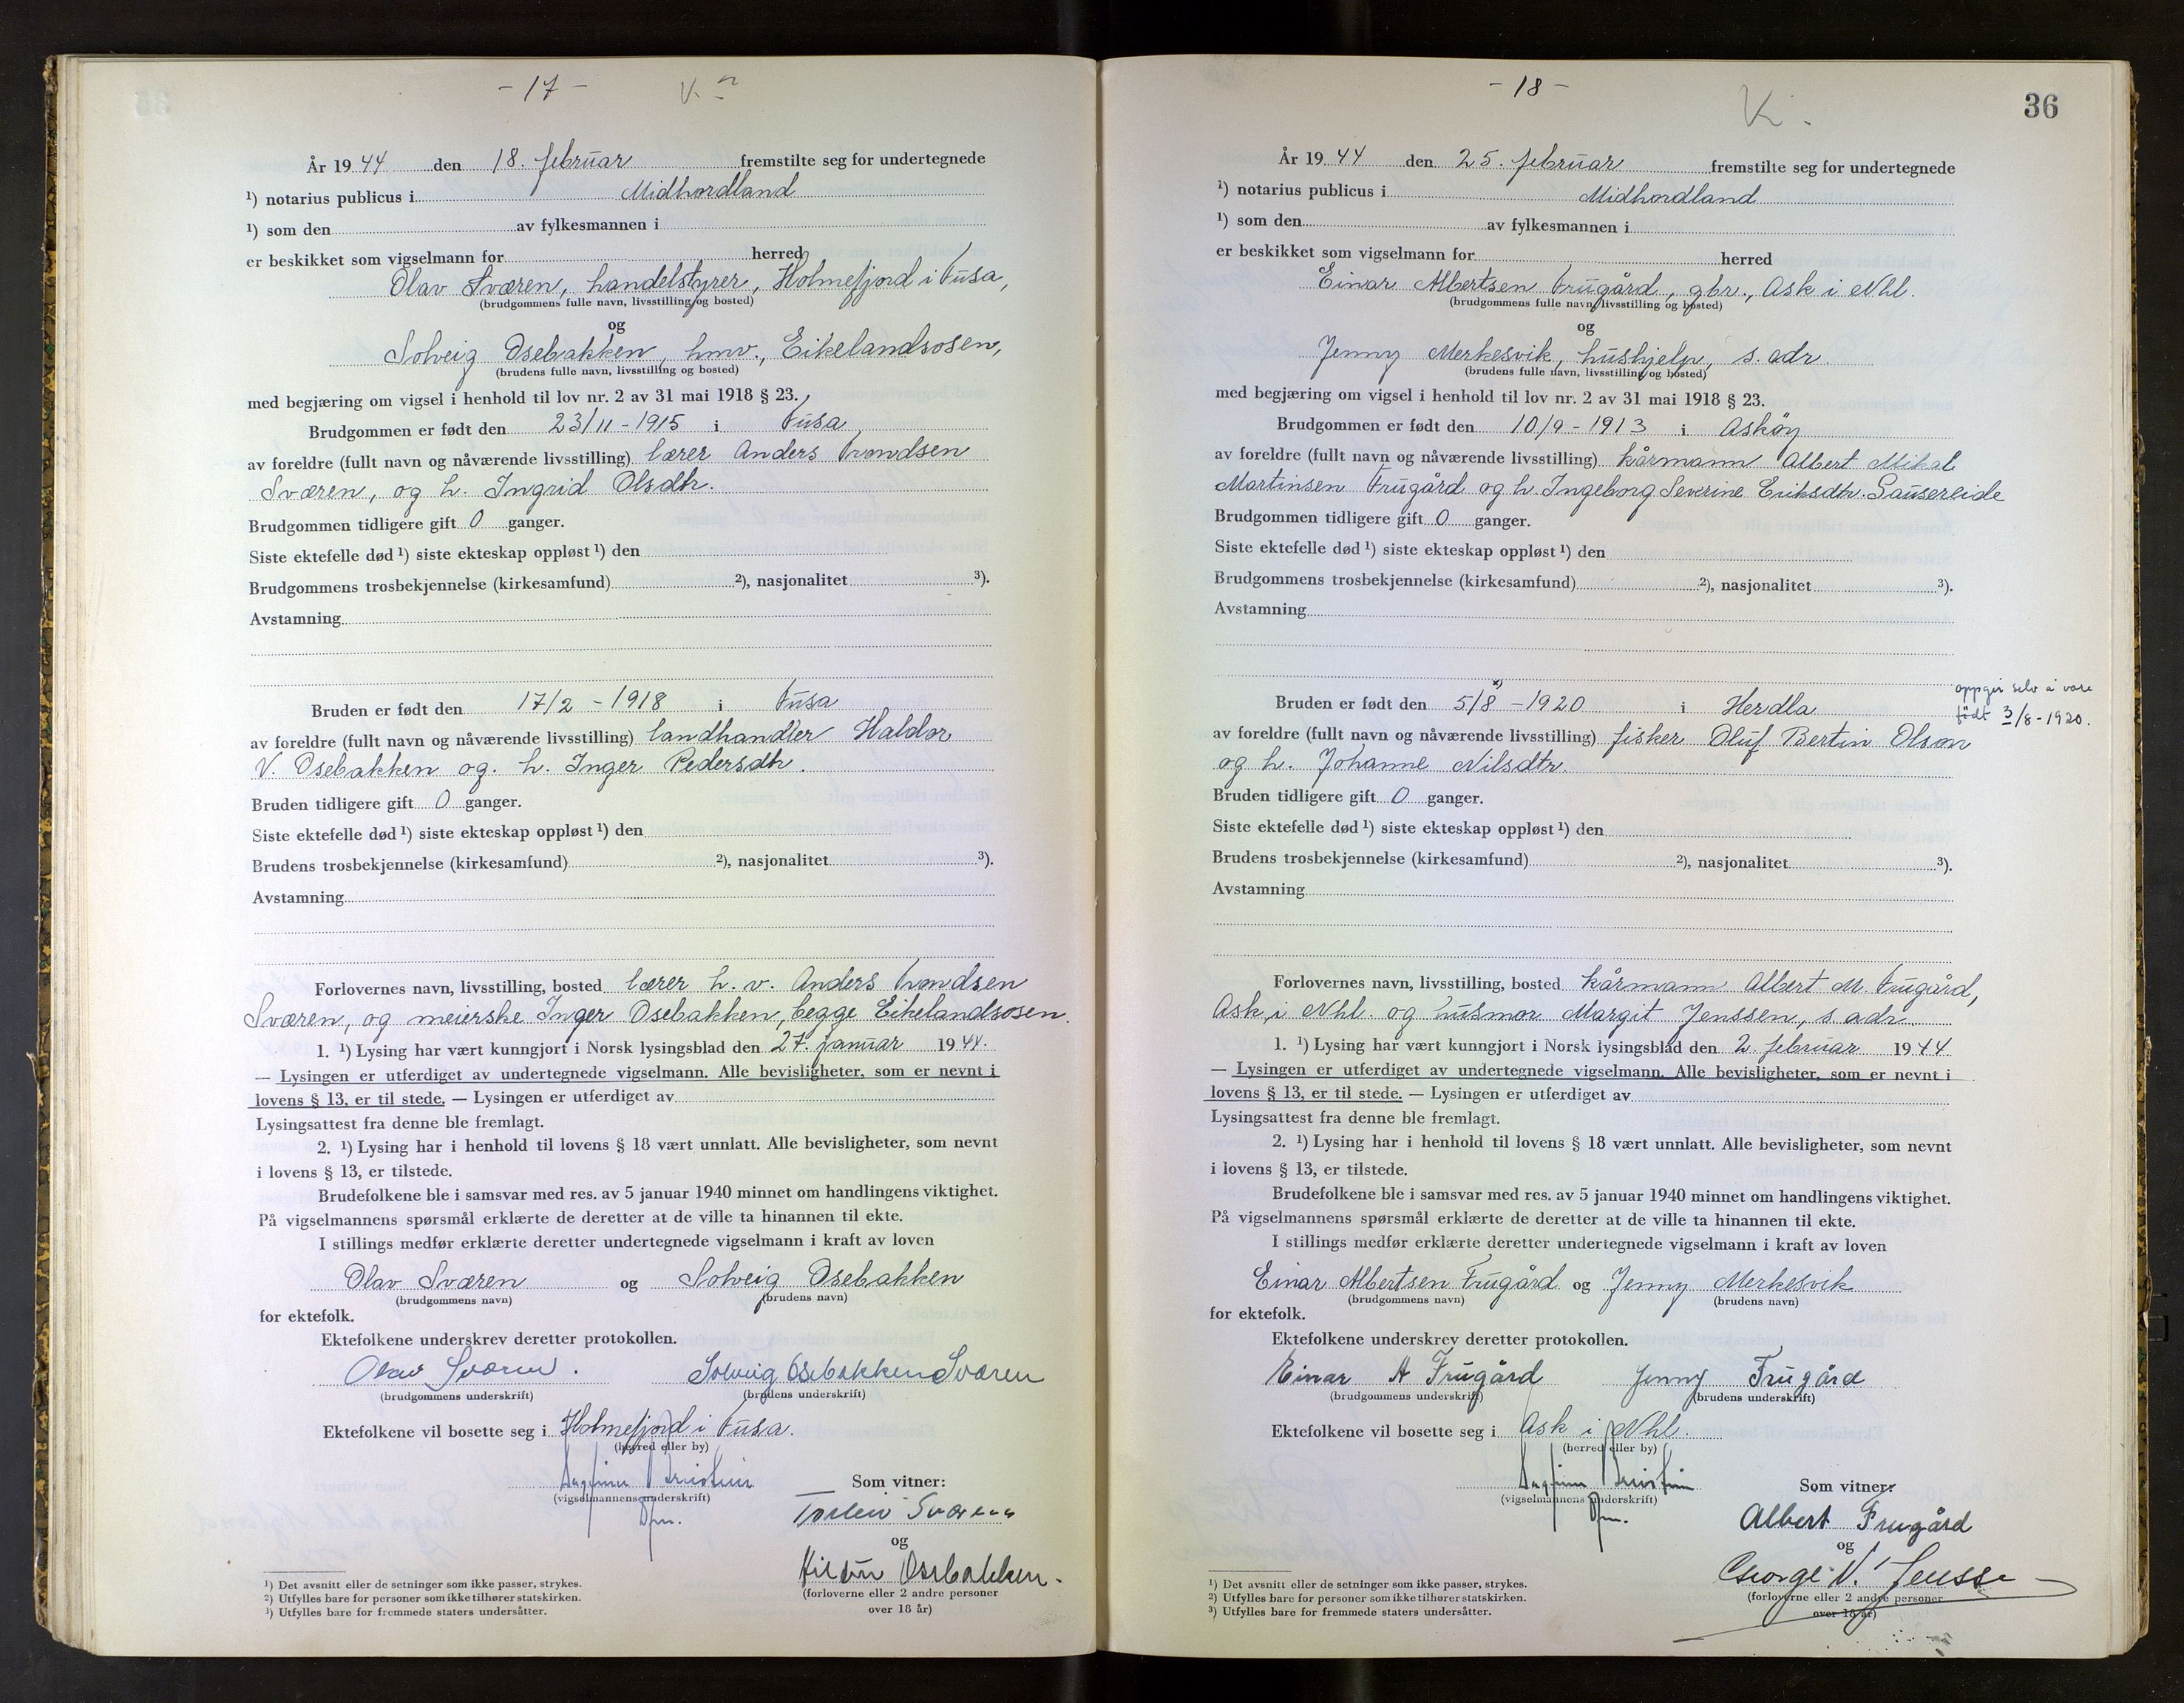 - 17 -
År 19 44 den 18. februar fremstilte seg for undertegnede
¹) notarius publicus i Midhordland
¹) som den av fylkesmannen i
er beskikket som vigselmann for herred
Olav Sværen, handelstyrer, Holmefjord i Fusa,
(brudgommens fulle navn, livsstilling og bosted)
og
Solveig Osebakken, hmv., Eikelandsosen,
(brudens fulle navn, livsstilling og bosted)
med begjæring om vigsel i henhold til lov nr. 2 av 31 mai 1918 § 23.
Brudgommen er født den 23/11 - 1915 i Fusa
av foreldre (fullt navn og nåværende livsstilling) lærer Anders Trondsen
Sværen, og h. Ingrid Olsdtr.
Brudgommen tidligere gift 0 ganger.
Siste ektefelle død ¹) siste ekteskap oppløst ¹) den
Brudgommens trosbekjennelse (kirkesamfund) ²), nasjonalitet ³).
Avstamning
Bruden er født den 17/2 - 1918 i Fusa
av foreldre (fullt navn og nåværende livsstilling) landhandler Haldor
V. Osebakken og. h. Inger Pedersdtr.
Bruden tidligere gift 0 ganger.
Siste ektefelle død ¹) siste ekteskap oppløst ¹) den
Brudens trosbekjennelse (kirkesamfund) ²), nasjonalitet ³).
Avstamning
Forlovernes navn, livsstilling, bosted lærer h. v. Anders Trondsen
Sværen, og meierske Inger Osebakken, begge Eikelandsosen.
1. ¹) Lysing har vært kunngjort i Norsk lysingsblad den 27. januar 19 44.
— Lysingen er utferdiget av undertegnede vigselmann. Alle bevisligheter, som er nevnt i
lovens § 13, er til stede. — Lysingen er utferdiget av
Lysingsattest fra denne ble fremlagt.
2. ¹) Lysing har i henhold til lovens § 18 vært unnlatt. Alle bevisligheter, som nevnt
i lovens § 13, er tilstede.
Brudefolkene ble i samsvar med res. av 5 januar 1940 minnet om handlingens viktighet.
På vigselmannens spørsmål erklærte de deretter at de ville ta hinannen til ekte.
I stillings medfør erklærte deretter undertegnede vigselmann i kraft av loven
Olav Sværen og Solveig Osebakken
(brudgommens navn) (brudens navn)
for ektefolk.
Ektefolkene underskrev deretter protokollen.
Olav Sværen. Solveig Osebakken Sværen
(brudgommens underskrift) (brudens underskrift)
Ektefolkene vil bosette seg i Holmefjord i Fusa.
(herred eller by)
(vigselmannens underskrift)
Dfm.
Som vitner:
Torleiv Sværen
og
Osebakken.
(forloverne eller 2 andre personer
over 18 år)
¹) Det avsnitt eller de setninger som ikke passer, strykes.
²) Utfylles bare for personer som ikke tilhører statskirken.
³) Utfylles bare for fremmede staters undersåtter.
- 18 -
36
År 19 44 den 25. februar fremstilte seg for undertegnede
¹) notarius publicus i Midhordland
¹) som den av fylkesmannen i
er beskikket som vigselmann for herred
Einar Albertsen Frugård, gbr., Ask i Nhl.
(brudgommens fulle navn, livsstilling og bosted)
og
Jenny Merkesvik, hushjelp, s. adr.
(brudens fulle navn, livsstilling og bosted)
med begjæring om vigsel i henhold til lov nr. 2 av 31 mai 1918 § 23.
Brudgommen er født den 10/9 - 1913 i Askøy
av foreldre (fullt navn og nåværende livsstilling) kårmann Albert Mikal
Martinsen Frugård og h. Ingeborg Severine Eriksdtr. Sausereide
Brudgommen tidligere gift 0 ganger.
Siste ektefelle død ¹) siste ekteskap oppløst ¹) den
Brudgommens trosbekjennelse (kirkesamfund) ²), nasjonalitet ³).
Avstamning
Bruden er født den 5/8 x) - 1920 i Herdla
oppgir selv å være
født 3/8 - 1920.
av foreldre (fullt navn og nåværende livsstilling) fisker Oluf Bertin Olson
og h. Johanne Nilsdtr.
Bruden tidligere gift 0 ganger.
Siste ektefelle død ¹) siste ekteskap oppløst ¹) den
Brudens trosbekjennelse (kirkesamfund) ²), nasjonalitet ³).
Avstamning
Forlovernes navn, livsstilling, bosted kårmann Albert M. Frugård,
Ask i Nhl. og husmor Margit Jenssen, s. adr.
1. ¹) Lysing har vært kunngjort i Norsk lysingsblad den 2. februar 19 44
— Lysingen er utferdiget av undertegnede vigselmann. Alle bevisligheter, som er nevnt i
lovens § 13, er til stede. — Lysingen er utferdiget av
Lysingsattest fra denne ble fremlagt.
2. ¹) Lysing har i henhold til lovens § 18 vært unnlatt. Alle bevisligheter, som nevnt
i lovens § 13, er tilstede.
Brudefolkene ble i samsvar med res. av 5 januar 1940 minnet om handlingens viktighet.
På vigselmannens spørsmål erklærte de deretter at de ville ta hinannen til ekte.
I stillings medfør erklærte deretter undertegnede vigselmann i kraft av loven
Einar Albertsen Frugård og Jenny Merkesvik
(brudgommens navn) (brudens navn)
for ektefolk.
Ektefolkene underskrev deretter protokollen.
Einar A Frugård Jenny Frugård
(brudgommens underskrift) (brudens underskrift)
Ektefolkene vil bosette seg i Ask i Nhl.
(herred eller by)
(vigselmannens underskrift)
Dfm.
Som vitner:
Albert Frugård
og
George N. Jensse
(forloverne eller 2 andre personer
over 18 år)
¹) Det avsnitt eller de setninger som ikke passer, strykes.
²) Utfylles bare for personer som ikke tilhører statskirken.
³) Utfylles bare for fremmede staters undersåtter.